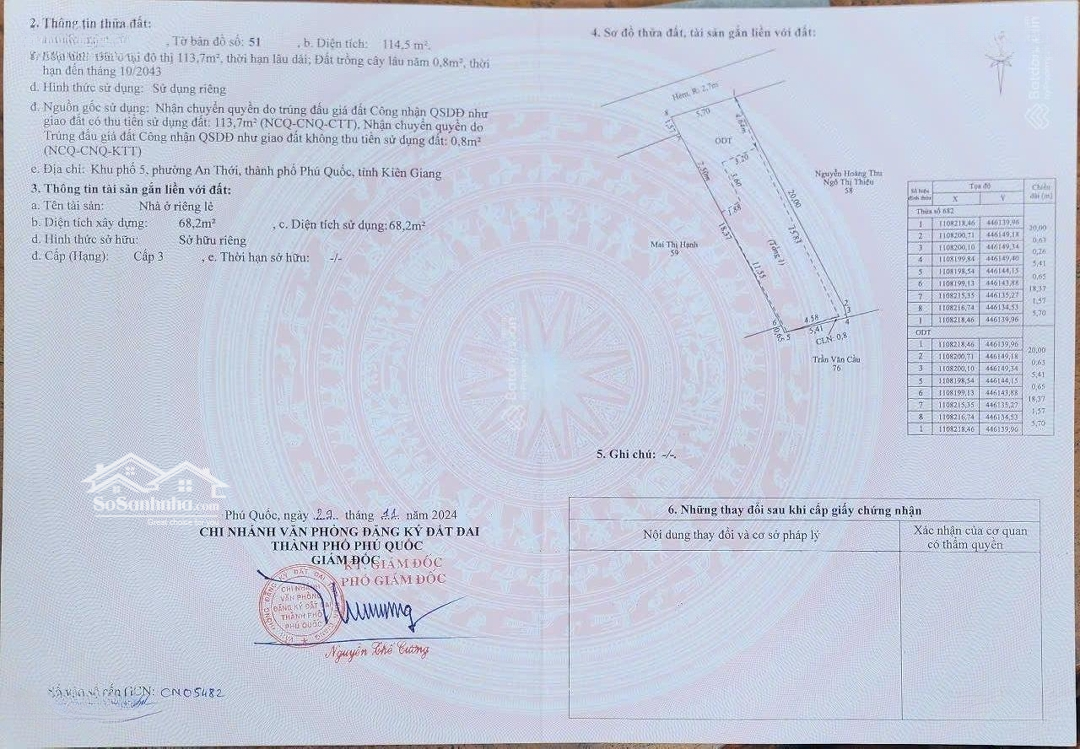 2. Thông tin thửa đất:
, Tờ bản đồ số: 51 , b. Diện tích: 114,5 m².
tại đô thị 113,7m², thời hạn lâu dài; Đất trồng cây lâu năm 0,8m², thời
hạn đến tháng 10/2043
d. Hình thức sử dụng: Sử dụng riêng
đ. Nguồn gốc sử dụng: Nhận chuyển quyền do trúng đấu giá đất Công nhận QSDĐ như
giao đất có thu tiền sử dụng đất: 113,7m² (NCQ-CNQ-CTT), Nhận chuyển quyền do
Trúng đấu giá đất Công nhận QSDĐ như giao đất không thu tiền sử dụng đất: 0,8m²
(NCQ-CNQ-KTT)
e. Địa chỉ: Khu phố 5, phường An Thới, thành phố Phú Quốc, tỉnh Kiên Giang
3. Thông tin tài sản gắn liền với đất:
a. Tên tài sản: Nhà ở riêng lẻ
b. Diện tích xây dựng: 68,2m² , c. Diện tích sử dụng: 68,2m²
d. Hình thức sở hữu: Sở hữu riêng
đ. Cấp (Hạng): Cấp 3 , e. Thời hạn sở hữu: -/-
SoSanhnha.com
Phú Quốc, ngày 27 tháng 11 năm 2024
CHI NHÁNH VĂN PHÒNG ĐĂNG KÝ ĐẤT ĐAI
THÀNH PHỐ PHÚ QUỐC
GIÁM ĐỐC
KT. GIÁM ĐỐC
PHÓ GIÁM ĐỐC
CHI NHÁNH
VĂN PHÒNG
ĐĂNG KÝ ĐẤT ĐAI
THÀNH PHỐ
PHÚ QUỐC
Nguyễn Thế Cường
CN05482
4. Sơ đồ thửa đất, tài sản gắn liền với đất:
Hẻm, R: 2,7m
8
5,70
1
1,57
7
4,84m
ODT
3,20
3,60
1,88
2,50m
20,00
25,83
18,37
11,55
(Tầng 1)
Nguyễn Hoàng Thu
Ngô Thị Thiêu
58
Mai Thị Hạnh
59
2
3
4
4,58
5,41
6
5
0,65
CLN: 0,8
Trần Văn Cầu
76
Số hiệu đỉnh thửa Tọa độ Chiều dài (m)
X Y
Thửa số 682
1 1108218,46 446139,96
20,00
2 1108200,71 446149,18
0,63
3 1108200,10 446149,34
0,26
4 1108199,84 446149,40
5,41
5 1108198,54 446144,15
0,65
6 1108199,13 446143,88
18,37
7 1108215,35 446135,27
1,57
8 1108216,74 446134,53
5,70
1 1108218,46 446139,96
ODT
1 1108218,46 446139,96
20,00
2 1108200,71 446149,18
0,63
3 1108200,10 446149,34
5,41
5 1108198,54 446144,15
0,65
6 1108199,13 446143,88
18,37
7 1108215,35 446135,27
1,57
8 1108216,74 446134,53
5,70
1 1108218,46 446139,96
5. Ghi chú: -/-.
6. Những thay đổi sau khi cấp giấy chứng nhận
Nội dung thay đổi và cơ sở pháp lý
Xác nhận của cơ quan
có thẩm quyền